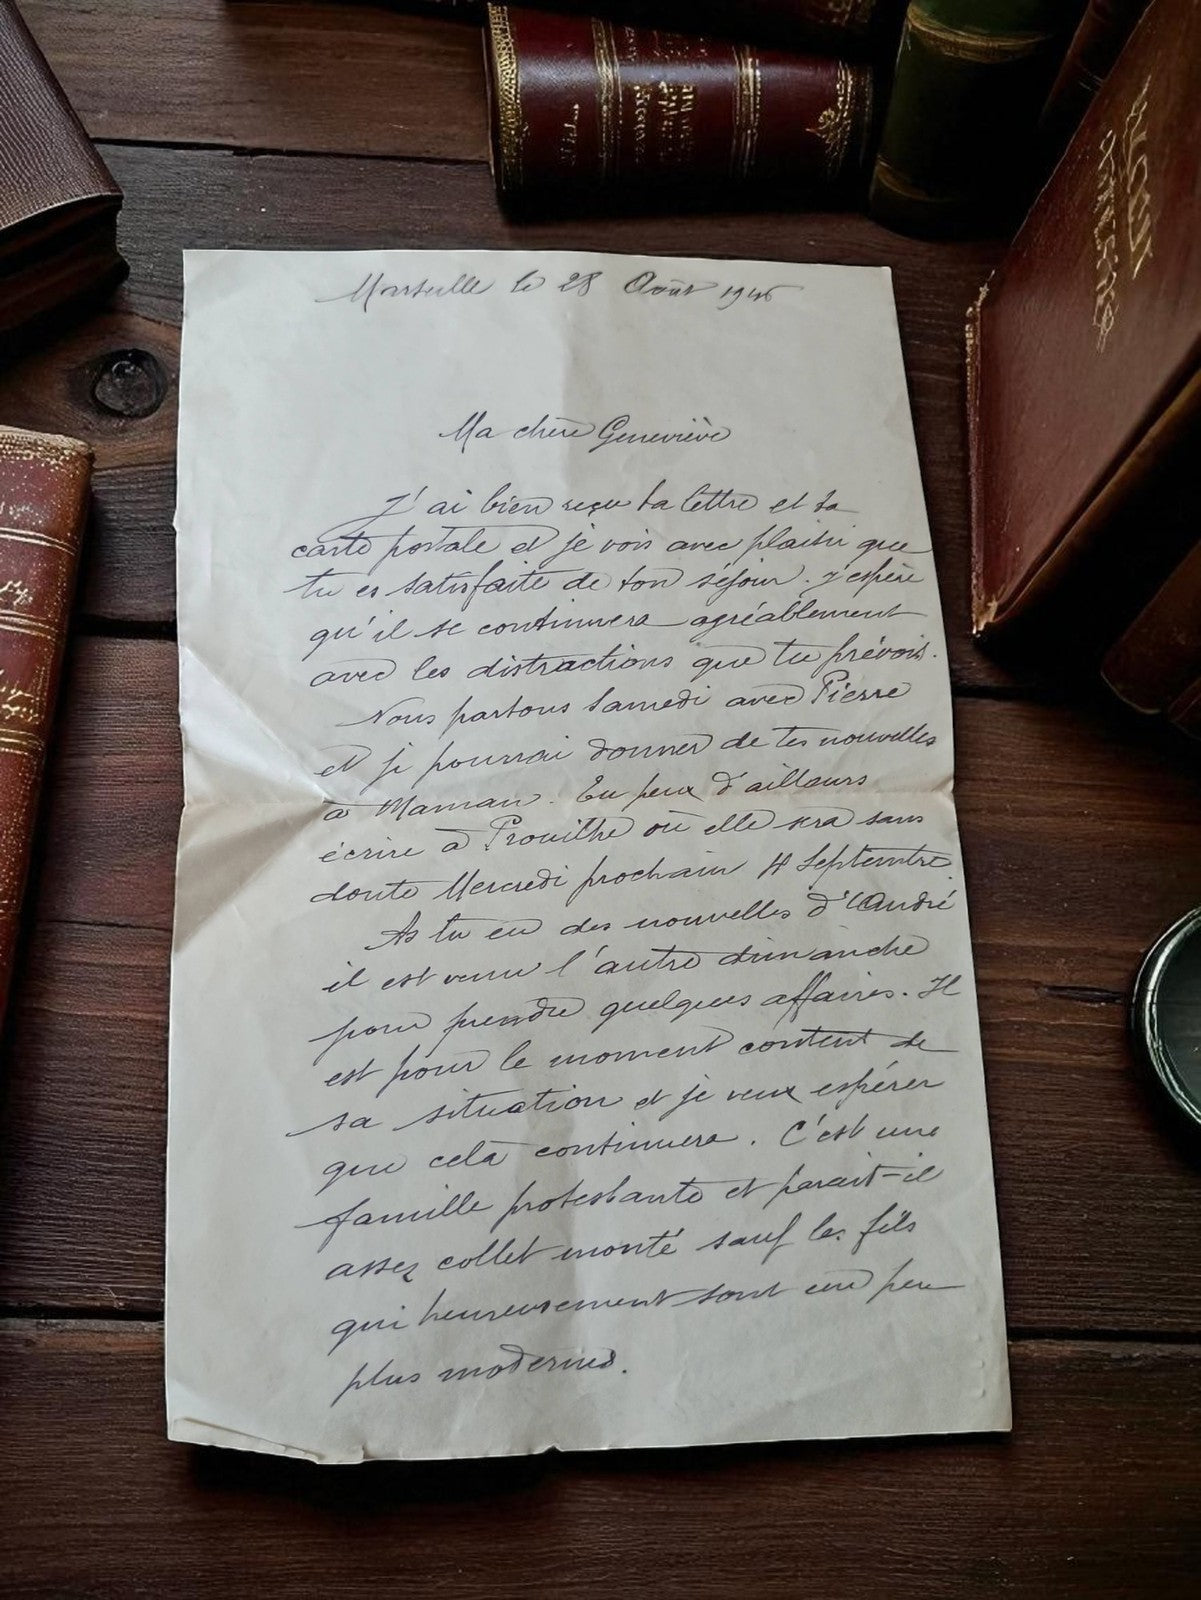 Marseille le 28 Août 1946
Ma chère Geneviève
J'ai bien reçu ta lettre et ta
carte postale et je vois avec plaisir que
tu es satisfaite de ton séjour. J'espère
qu'il se continuera agréablement
avec les distractions que tu prévois.
Nous partons Samedi avec Pierre
et je pourrai donner de tes nouvelles
à Maman. Tu peux d'ailleurs
écrire à Prouilhe où elle sera sans
doute Mercredi prochain 4 Septembre.
As tu eu des nouvelles d'André
il est venu l'autre dimanche
pour prendre quelques affaires. Il
est pour le moment content de
sa situation et je veux espérer
que cela continuera. C'est une
famille protestante et parait-il
assez collet monté sauf les fils
qui heureusement sont un peu
plus modernes.